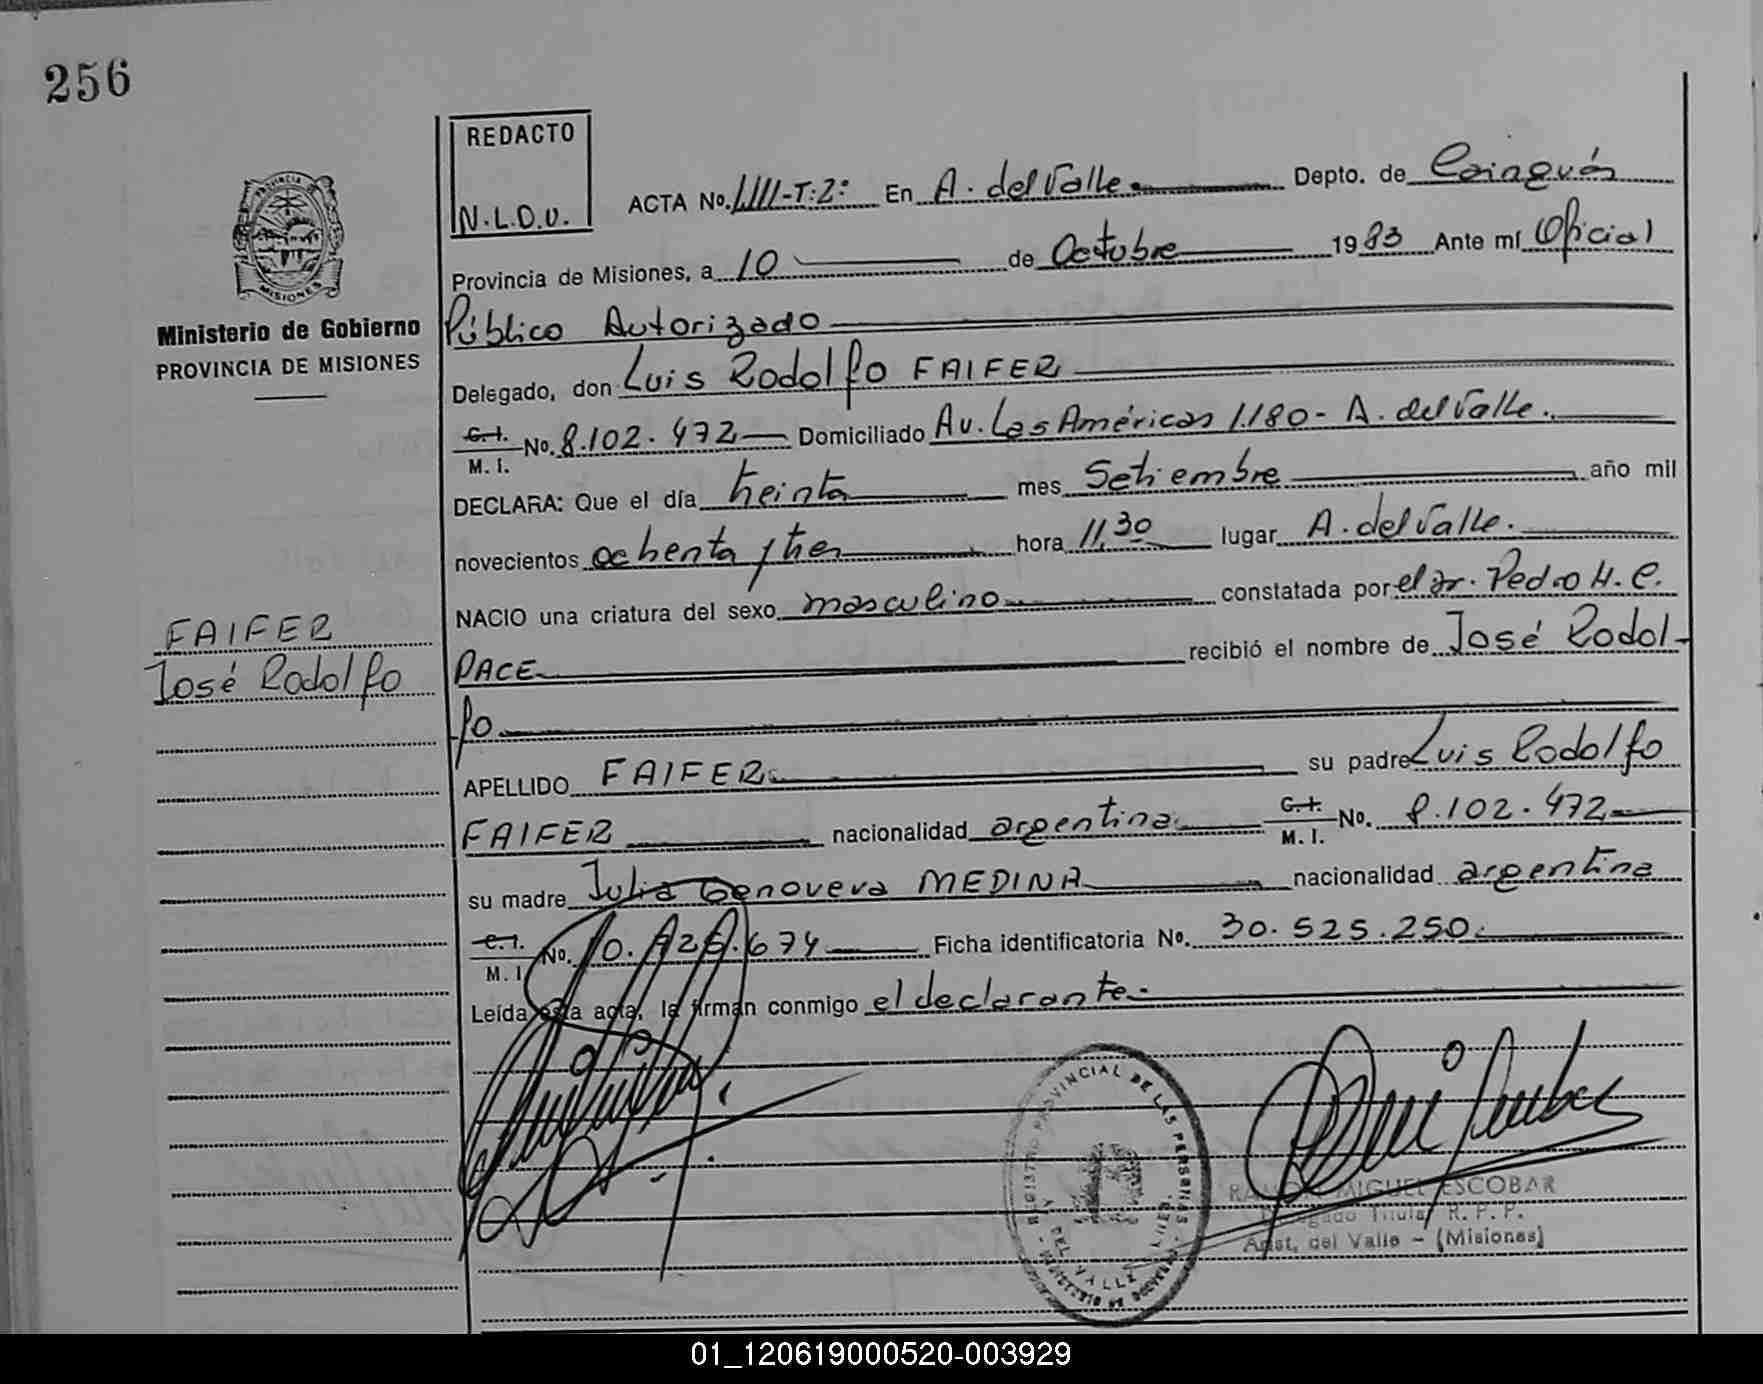 256
REDACTO
N.L.D.V.
ACTA No. LIII-T:2º En A. del Valle Depto. de Cainguás
Provincia de Misiones, a 10 de Octubre 1983 Ante mí Oficial
Ministerio de Gobierno
PROVINCIA DE MISIONES
Público Autorizado
Delegado, don Luis Rodolfo FAIFER
C.I. M.I. No. 8.102.472 Domiciliado Av. Las Américas 1.180 - A. del Valle.
DECLARA: Que el día treinta mes Setiembre año mil
novecientos ochenta y tres hora 11,30 lugar A. del Valle.
NACIO una criatura del sexo masculino constatada por el Dr. Pedro H. C.
PACE recibió el nombre de José Rodol-
fo
FAIFER
José Rodolfo
APELLIDO FAIFER su padre Luis Rodolfo
FAIFER nacionalidad argentina C.I. M.I. No. 8.102.472
su madre Julia Genoveva MEDINA nacionalidad argentina
C.I. M.I No. 10. .674 Ficha identificatoria No. 30.525.250.
Leída esta acta, la firman conmigo el declarante.
REGISTRO PROVINCIAL DE LAS PERSONAS
A. DEL VALLE
RAMON MIGUEL ESCOBAR
Delegado Titular R.P.P.
Arist. del Valle - (Misiones)
01_120619000520-003929